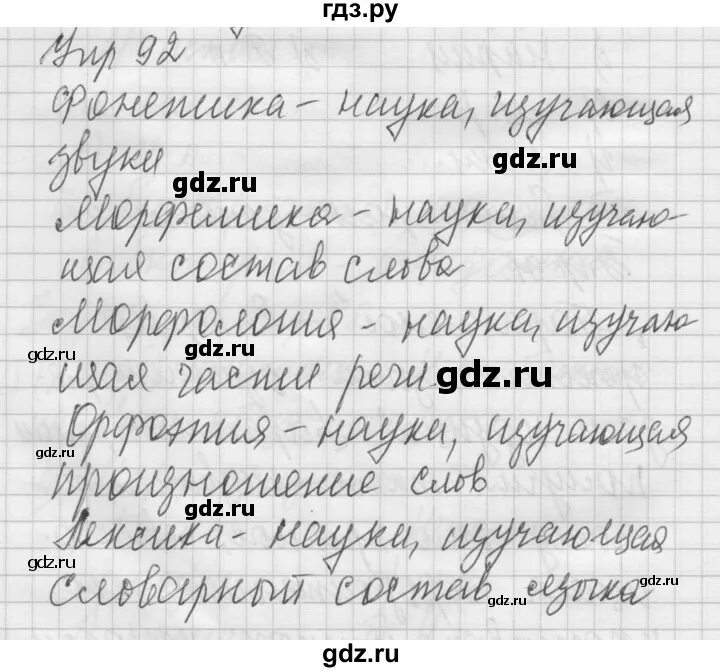 гдз.ру
Упр 92
Фонетика - наука, изучающая
звуки
gdz.ru
gdz.ru
Морфемика - наука, изучаю-
щая состав слова
Морфология - наука, изучаю
gdz.ru
gdz.ru
щая части речи
gdz.ru
Орфоэпия - наука, изучающая
gdz.ru
произношение слов
gdz.ru
Лексика - наука, изучающая
gdz.ru
gdz.ru
словарный состав языка
gdz.ru
gdz.ru